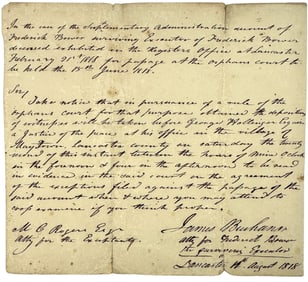 In the case of the Suplementary Administration account of
Frederick Bower surviving Executor of Frederick Bower
deceased exhibited in the Registers Office at Lancaster
February 21st 1818 for passage at the orphans court to
be held the 15th June 1818.
Sir/
Take notice that in pursuance of a rule of the
orphans court for that purpose obtained the deposition
of witnesses will be taken before George Esqr
a Justice of the peace at his office in the village of
Maytown Lancaster county on saturday the twenty
nine of this instant between the hours of Nine O'clock
in the forenoon & four in the afternoon to be read
in evidence in the said court on the argument
of the exceptions filed against the passage of the
said account when & where you may attend to
cross examine if you think proper.
M C Rogers Esqr
Atty for the Exceptants.
James Buchanan
atty for Frederick Bower
the surviving Executor
Lancaster August 1818